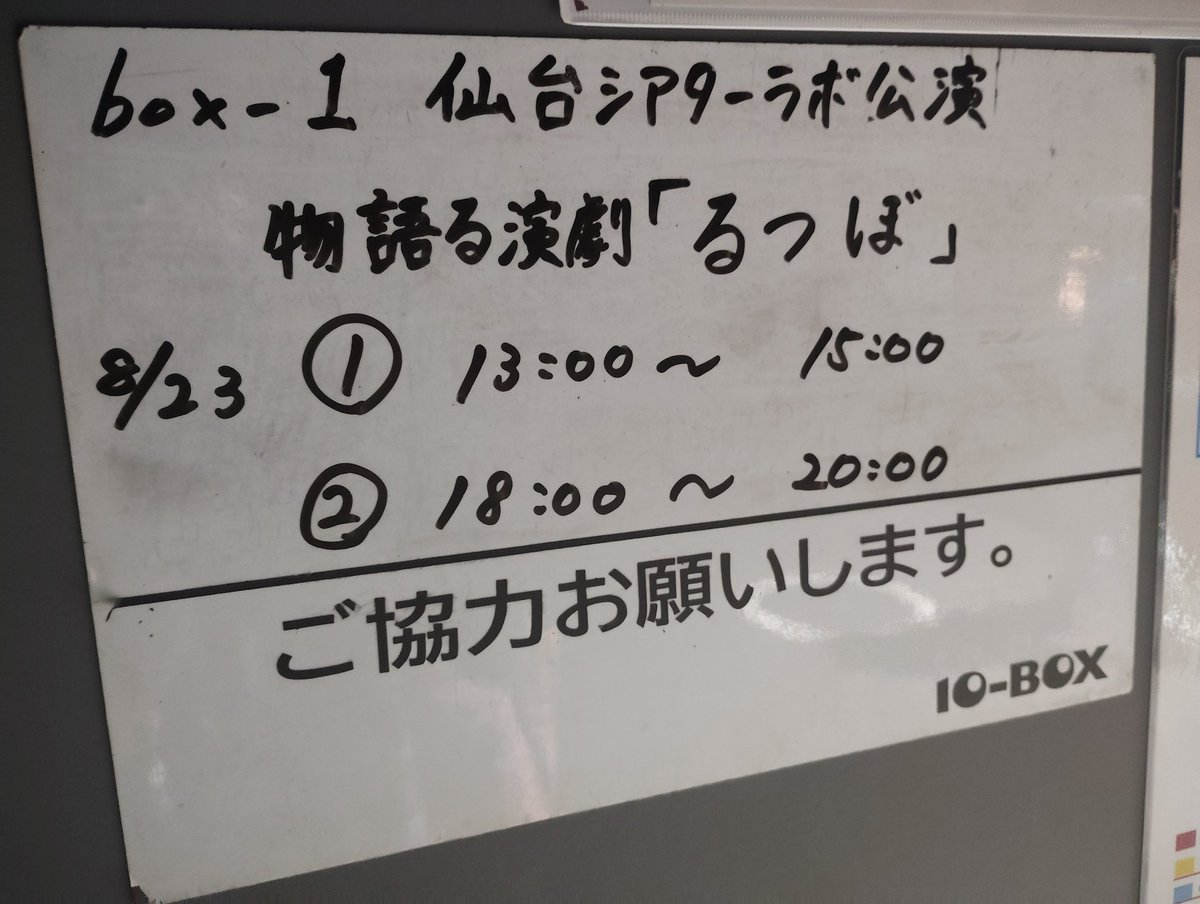 box-1 仙台シアターラボ公演
物語る演劇「るつぼ」
8/23 ① 13:00〜 15:00
② 18:00〜 20:00
ご協力お願いします。
10-BOX